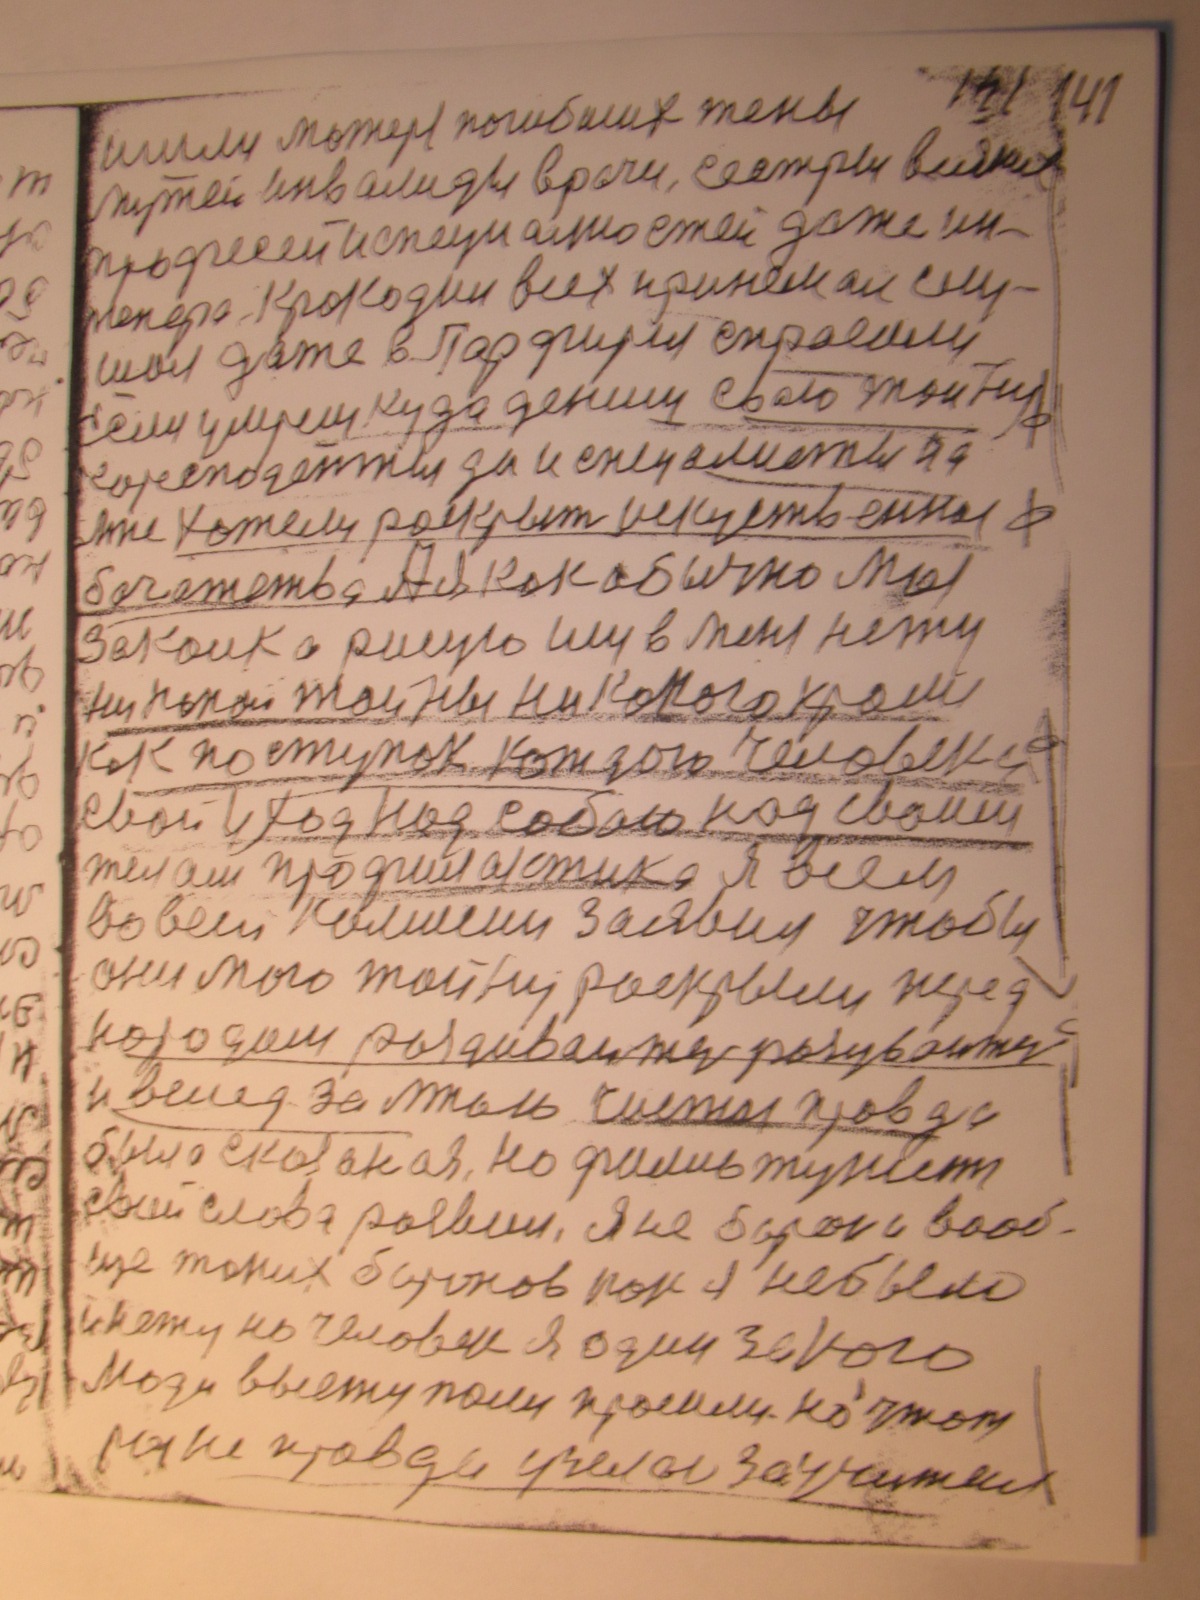 141 141
ишли матеря погибших жены
мужей инвалиды врачи, сестры всяких
професей и специалностей даже ин-
женера. Крокодил всех принемал слу-
шал даже в Парфирия спрасили
если умреш куда дениш свою тайну
коресподенты да и специалисты на
мне хотели раскрыт искуственная
багатства А я как обычно мая
закалка рисую или в меня нету
ни какой тайны ни какого кроме
как поступок каждого человека
свой уход над собаю над своим
телам профилактика Я всем
во всей камисии заявил чтобы
они маю тайну раскрыли перед
народам раздивайте разувайте
и вслед за мною чистая правда
была сказаная, но фины журист
свои слова разви, я не барон а вооб-
ще таких баронов как я небыло
и нету но человек я один за кого
люди выступали прасили на чтот
не правда целая за учителя